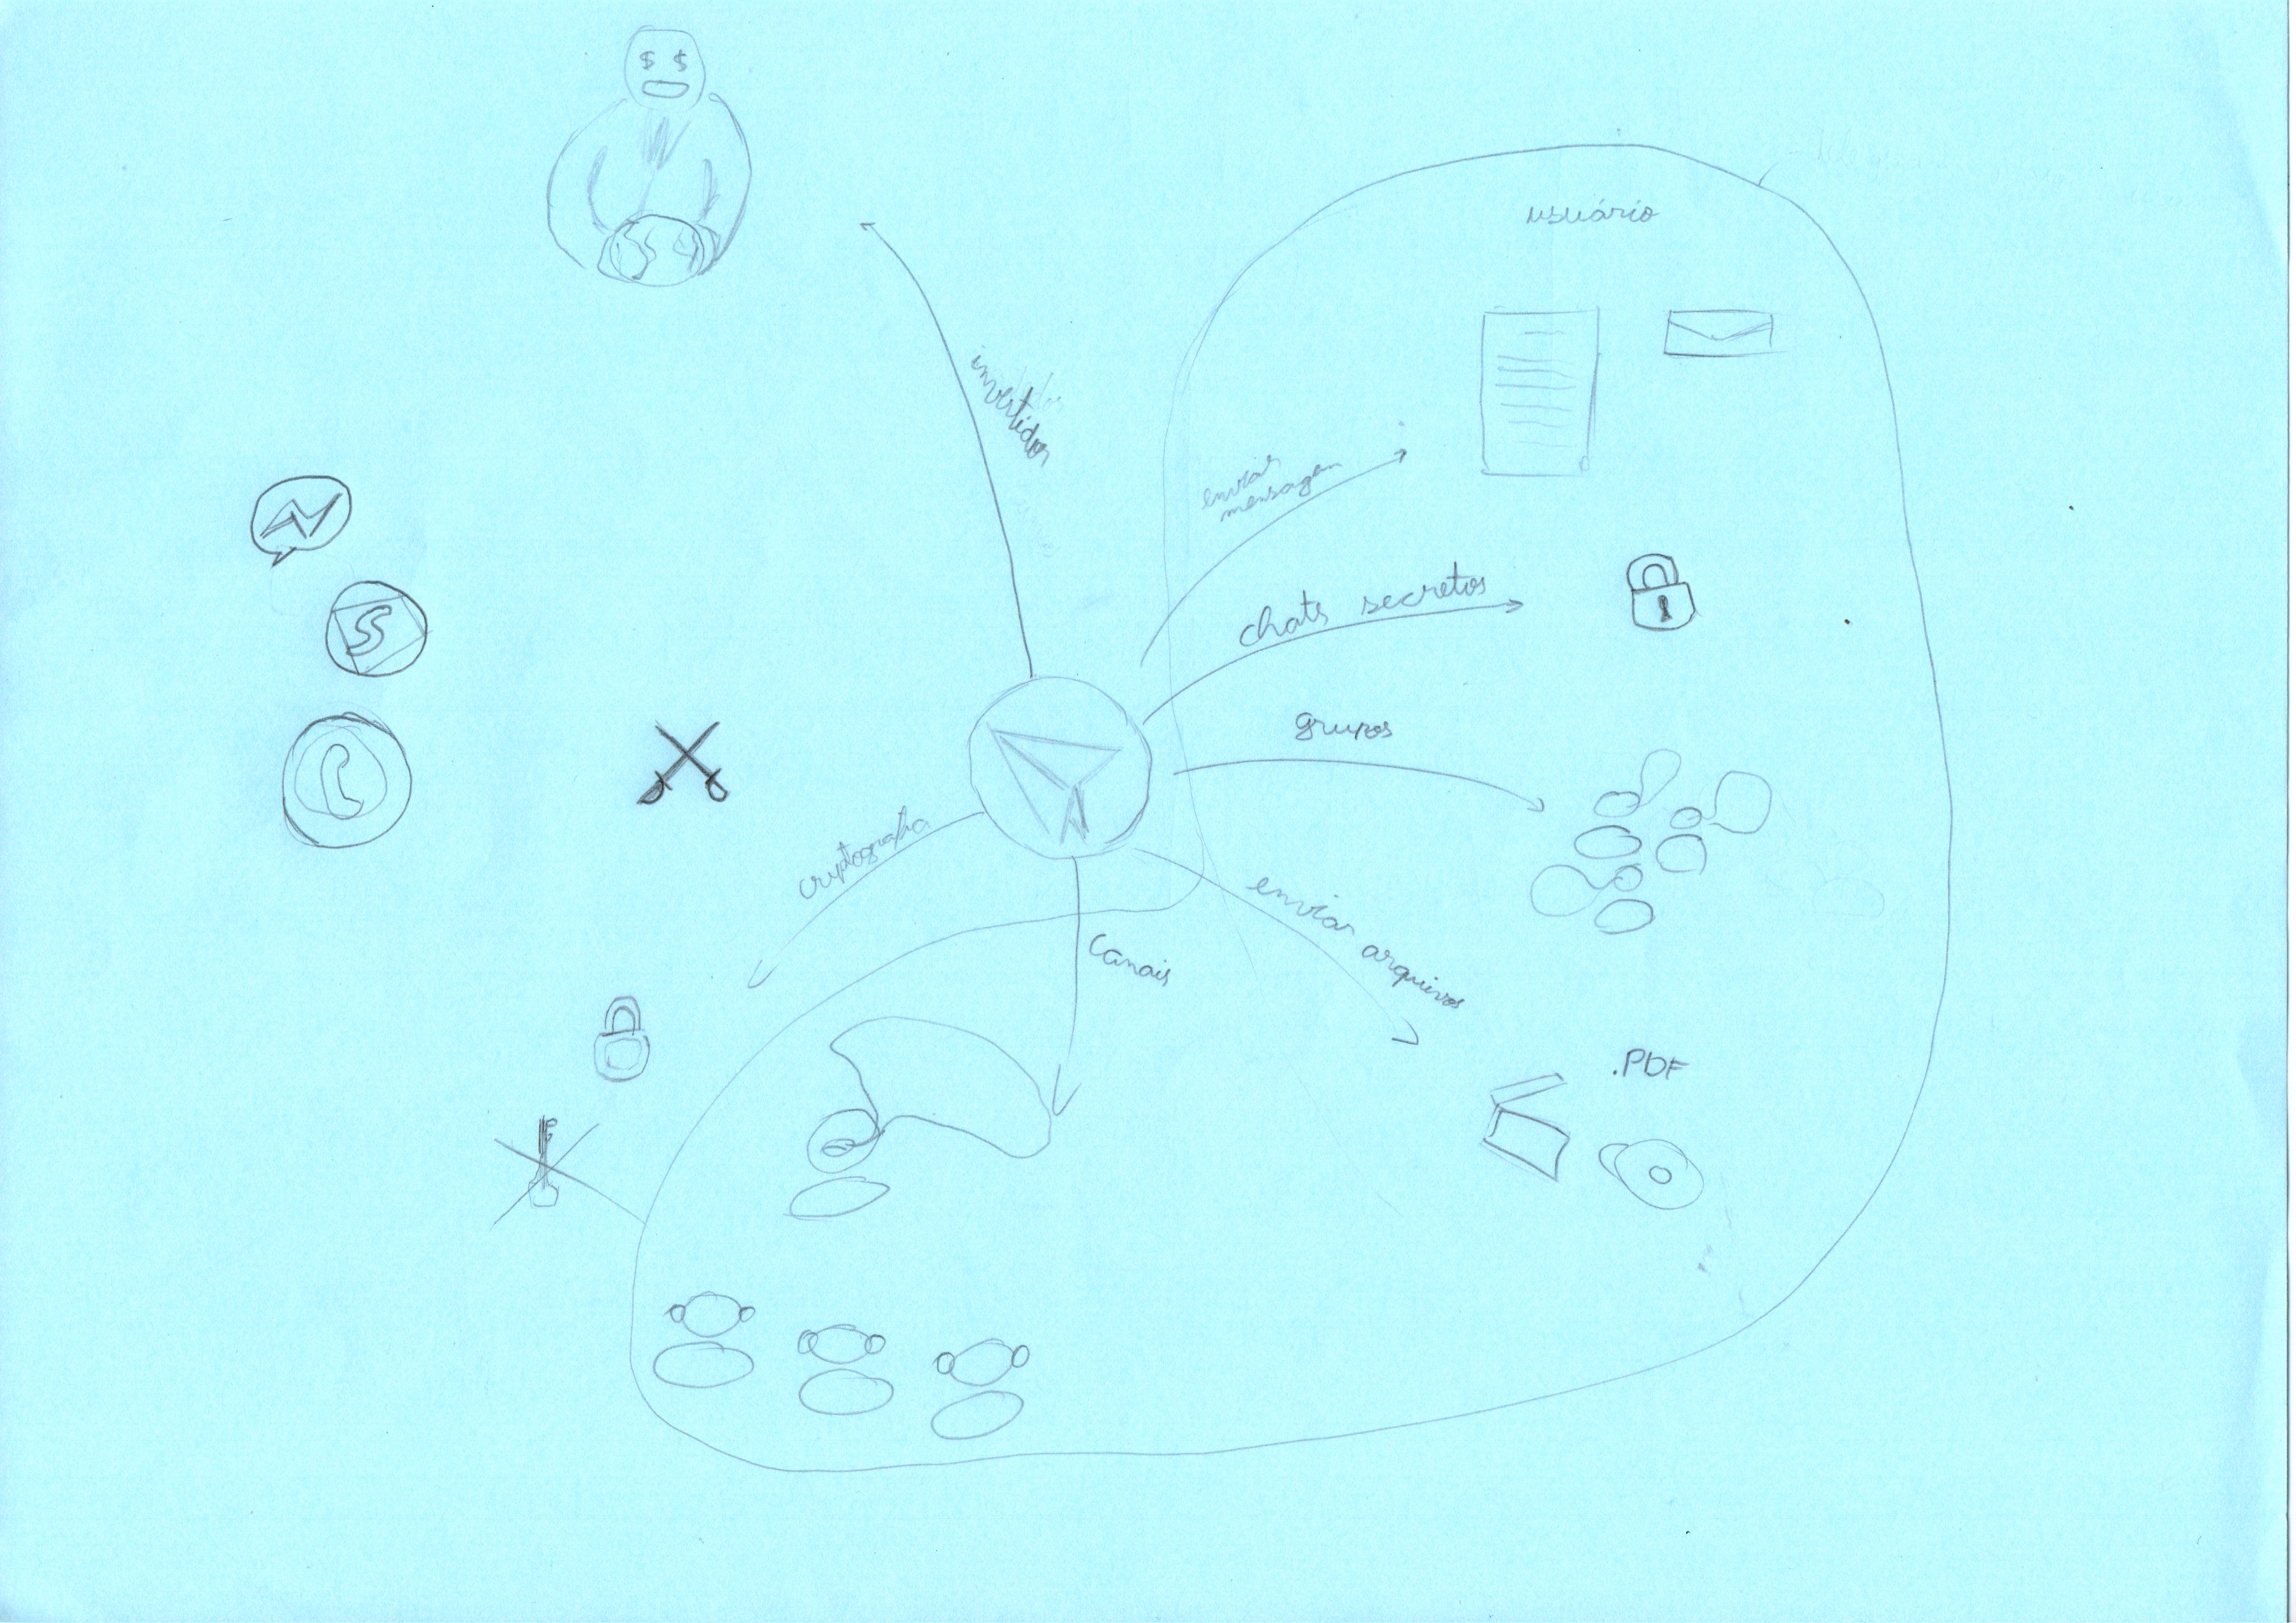 $ $
usuário
investidor
enviar
mensagem
chats secretos
S
grupos
criptografia
enviar arquivos
canais
.PDF